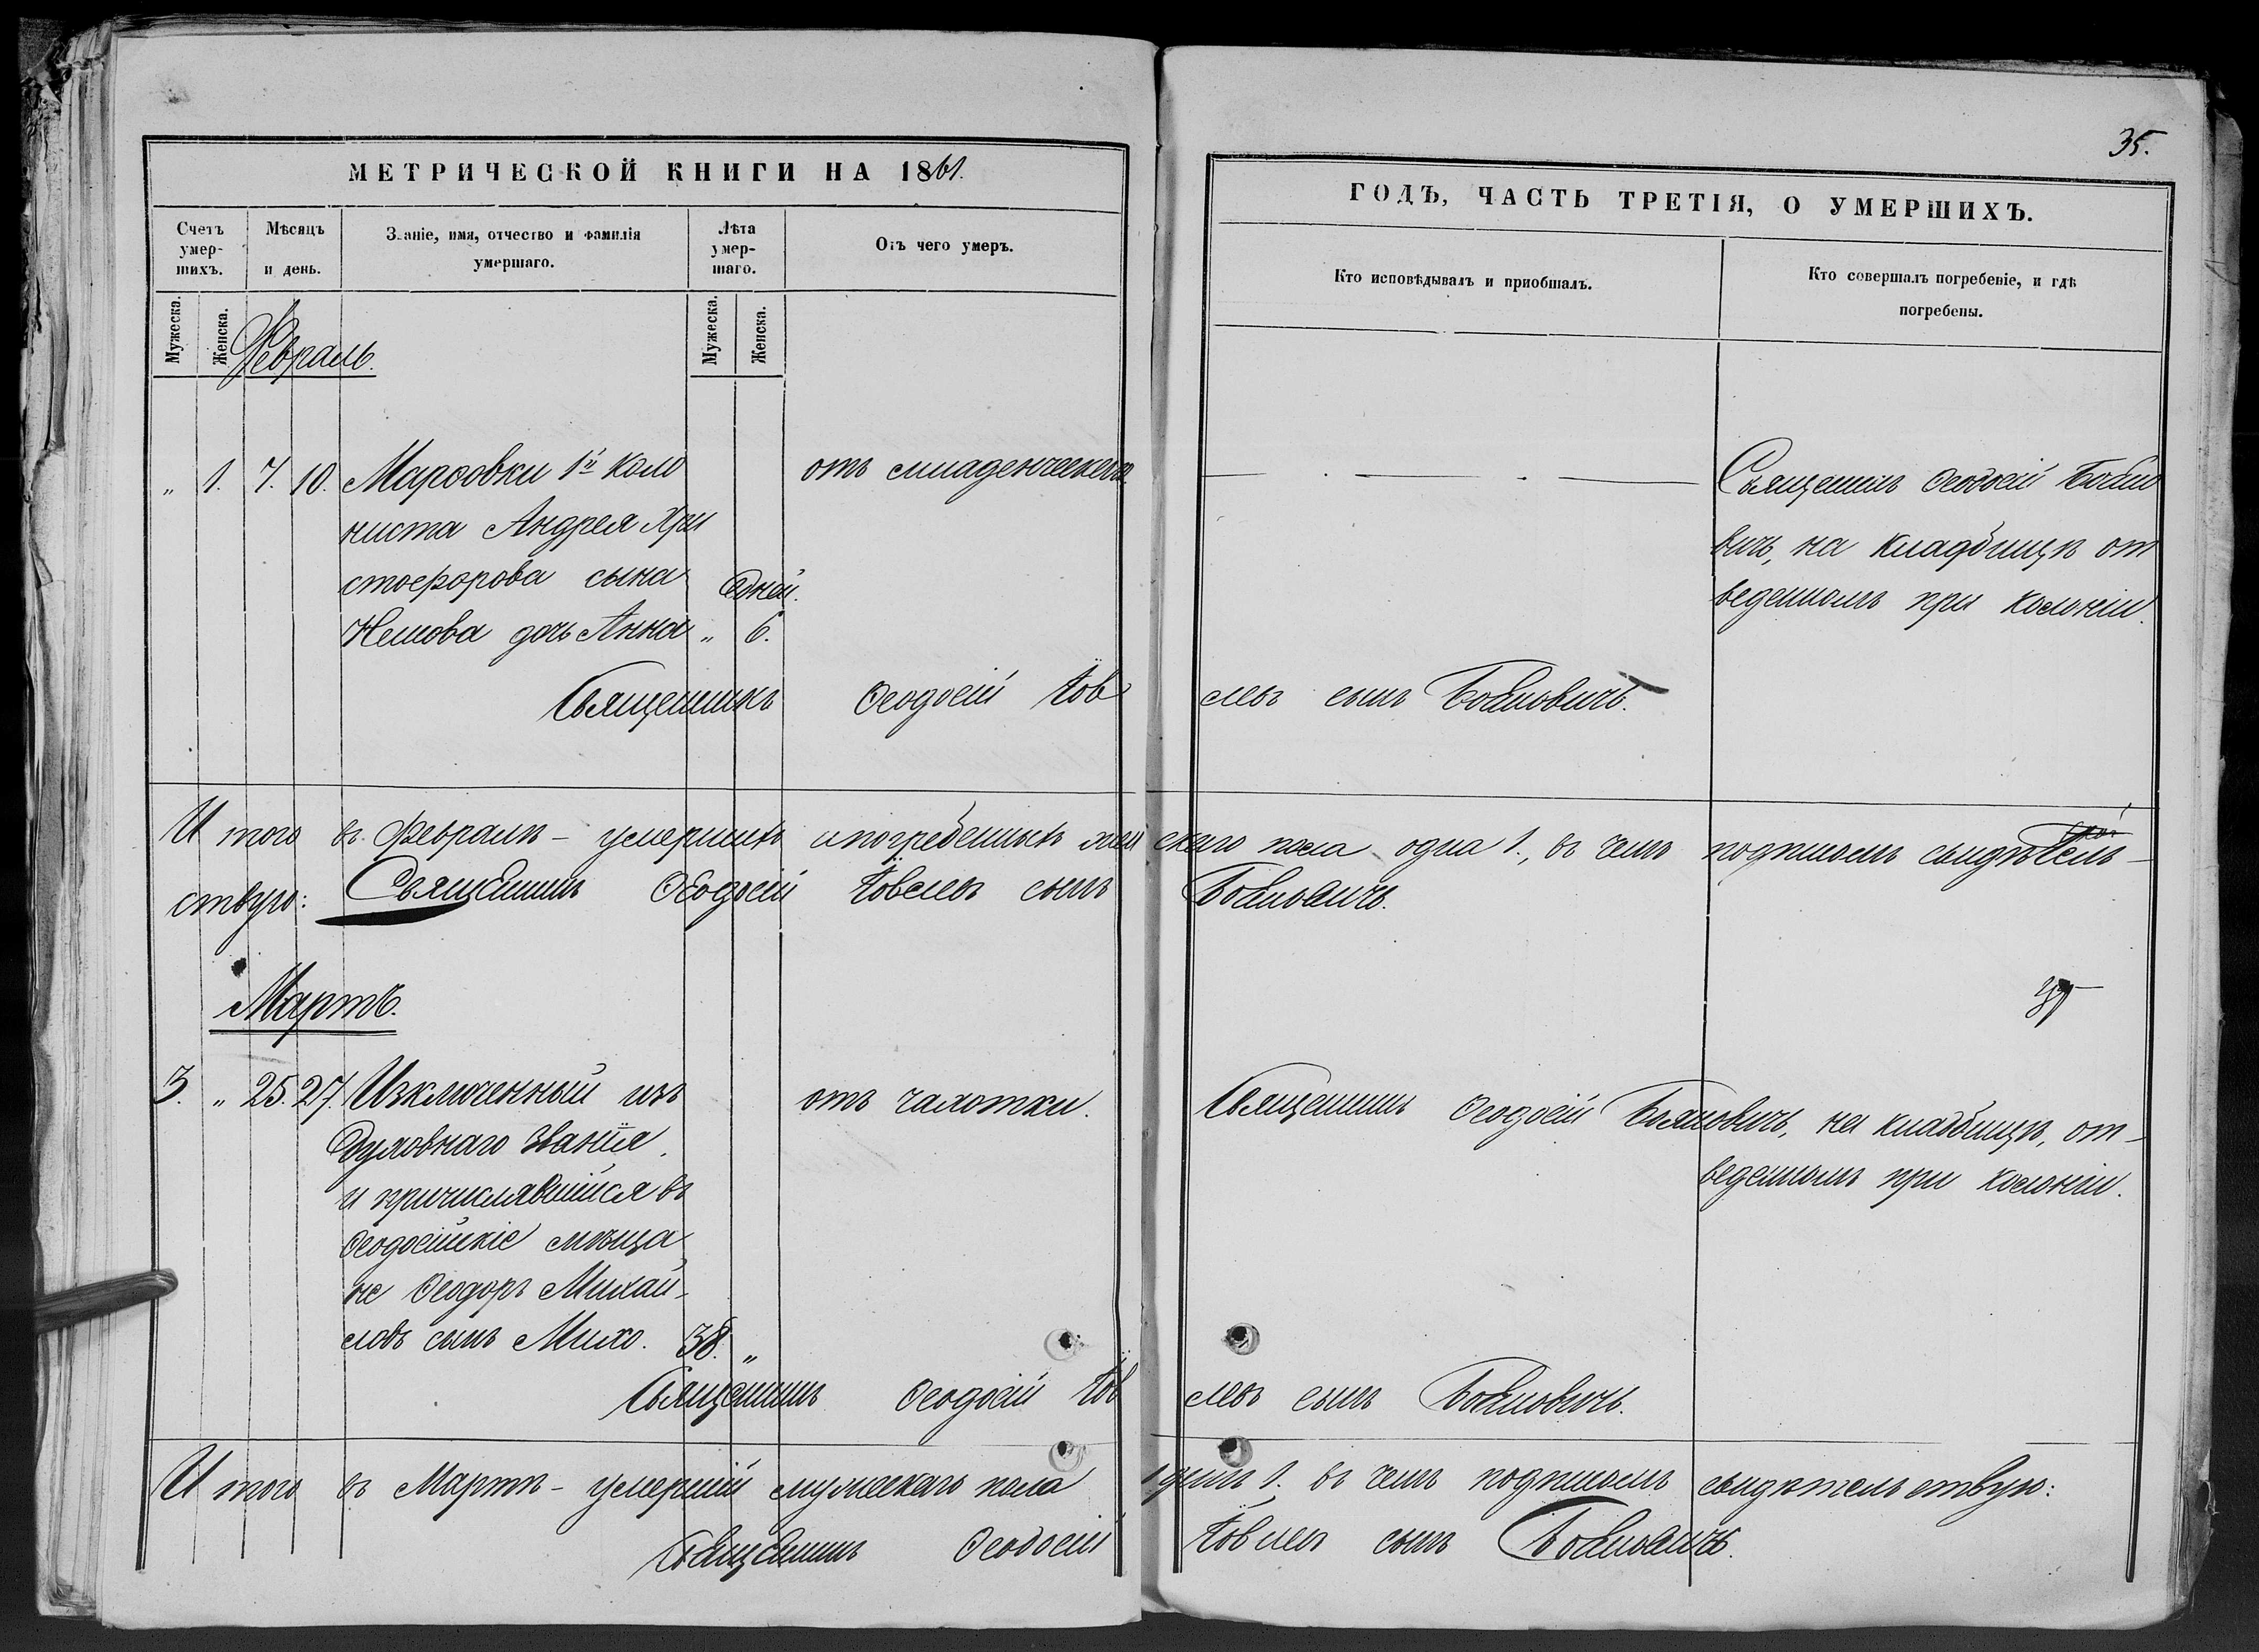 35.
МЕТРИЧЕСКОЙ КНИГИ НА 1861.
ГОДЪ, ЧАСТЬ ТРЕТІЯ, О УМЕРШИХЪ.
Счетъ умер-шихъ.
Мѣсяцъ и день.
Званіе, имя, отчество и фамилія умершаго.
Лѣта умер-шаго.
Отъ чего умеръ.
Кто исповѣдывалъ и пріобщалъ.
Кто совершалъ погребеніе, и гдѣ погребены.
Мужеска.
Женска.
Мужеска.
Женска.
Февраль.
„ 1. 7. 10. Марѳовки 1й коло
ниста Андрея Хри
стофорова сына
дней.
дочь Анна „ 6.
отъ младенческой
Священникъ Ѳеодосій Бояно
вичъ, на кладбищѣ от
веденномъ при колоніи.
Священникъ Ѳеодосій Іов
левъ сынъ Бояновичъ.
И того въ Февралѣ – умершихъ и погребенныхъ жен скаго пола одна 1., въ чемъ подписомъ свидѣтель-
ствую: Священникъ Ѳеодосій Іовлевъ сынъ Бояновичъ.
Мартъ.
3. „ 25. 27. Изключенный изъ
Духовнаго Званія
и причислявшійся въ
Ѳеодосійскіе мѣща
не Ѳеодоръ Михай-
ловъ сынъ Михо. 38. „
отъ чахотки.
Священникъ Ѳеодосій Бояновичъ, на кладбищѣ, от-
веденномъ при колоніи.
Священникъ Ѳеодосій Іов
левъ сынъ Бояновичъ.
И того въ Мартѣ – умершій мужескаго пола одинъ 1. въ чемъ подписомъ свидѣтельствую:
Священникъ Ѳеодосій Іовлевъ сынъ Бояновичъ.